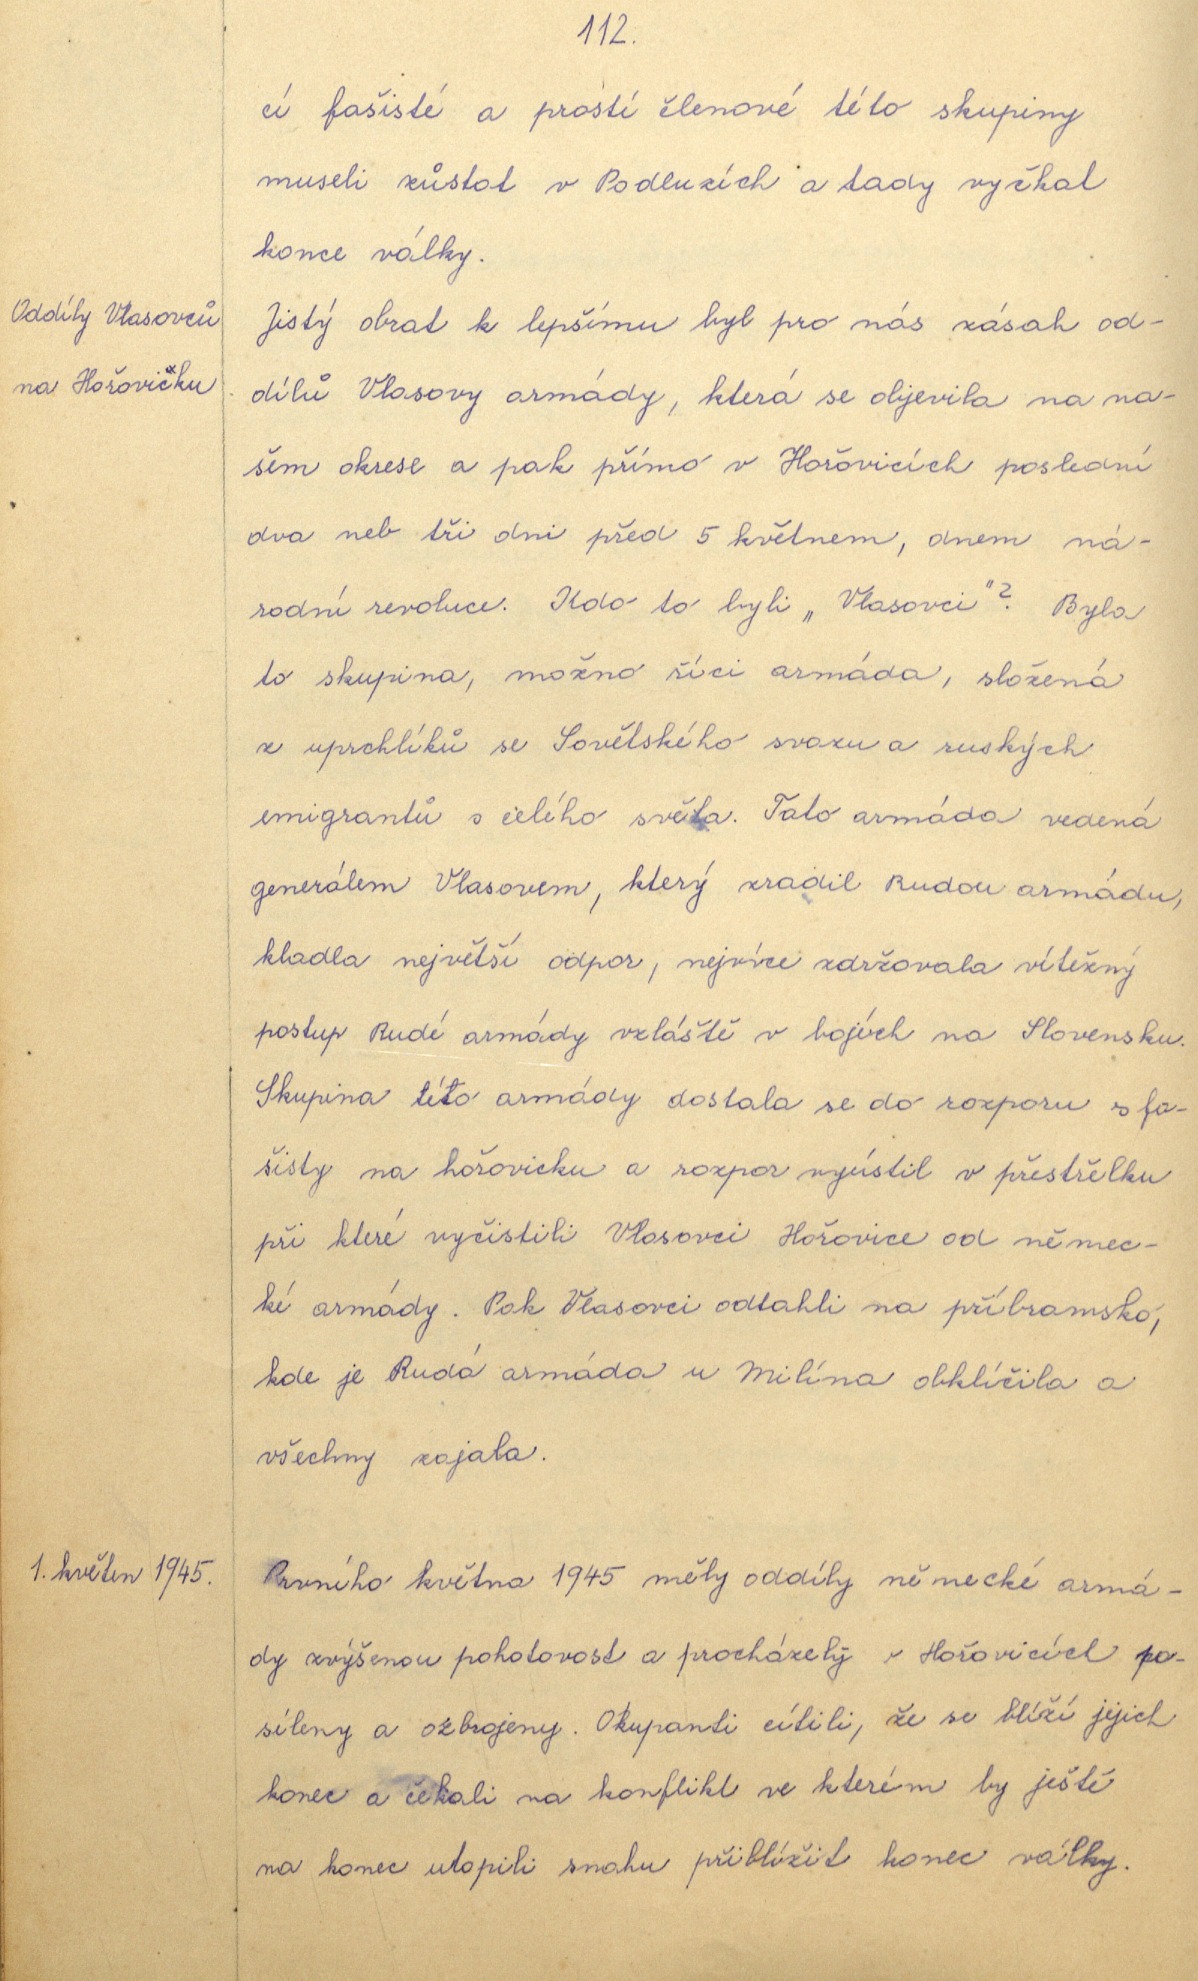 112.
cí fašisté a prostí členové této skupiny
museli zůstat v Podluzích a tady vyčkat
konce války.
Oddíly Vlasovců
na Hořovičku
Jistý obrat k lepšímu byl pro nás zásah od-
dílů Vlasovy armády, která se objevila na na-
šem okrese a pak přímo v Hořovicích poslední
dva neb tři dni před 5 květnem, dnem ná-
rodní revoluce. Kdo to byli „Vlasovci"? Byla
to skupina, možno říci armáda, složená
z uprchlíků se Sovětského svazu a ruských
emigrantů s celého světa. Tato armáda vedená
generálem Vlasovem, který zradil Rudou armádu,
kladla největší odpor, nejvíce zdržovala vítězný
postup Rudé armády vzláště v bojích na Slovensku.
Skupina této armády dostala se do rozporu s fa-
šisty na hořovicku a rozpor vyústil v přestřelku
při které vyčistili Vlasovci Hořovice od němec-
ké armády. Pak Vlasovci odtahli na příbramsko,
kde je Rudá armáda u Milína obklíčila a
všechny zajala.
1. květen 1945.
Prvního května 1945 měly oddíly německé armá-
dy zvýšenou pohotovost a procházely v Hořovicích po-
síleny a ozbrojeny. Okupanti cítili, že se blíží jejich
konec a čekali na konflikt ve kterém by ještě
na konec utopili snahu přiblížit konec války.